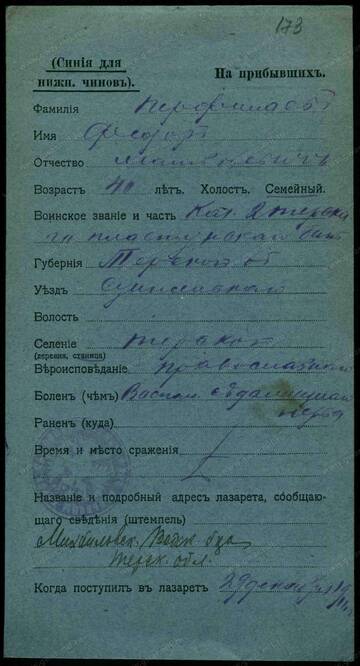 173
(Синія для
нижн. чиновъ).
На прибывшихъ.
Фамилія
Имя Федоръ
Отчество
Возрастъ 40 лѣтъ. Холост. Семейный.
Воинское званіе и часть Каз. 2 терска
го пластунскаго бат
Губернія Терской об
Уѣздъ
Волость
Селеніе
(деревня, станица)
Вѣроисповѣданіе православный
Боленъ (чѣмъ) Воспал. сѣдалищнаго
нерва
Раненъ (куда)
Время и мѣсто сраженія
Названіе и подробный адресъ лазарета, сообщаю-
щаго свѣдѣнія (штемпель)
Михайловск. Войск. б-ца
Терск. обл.
Когда поступилъ въ лазаретъ 29 декабря